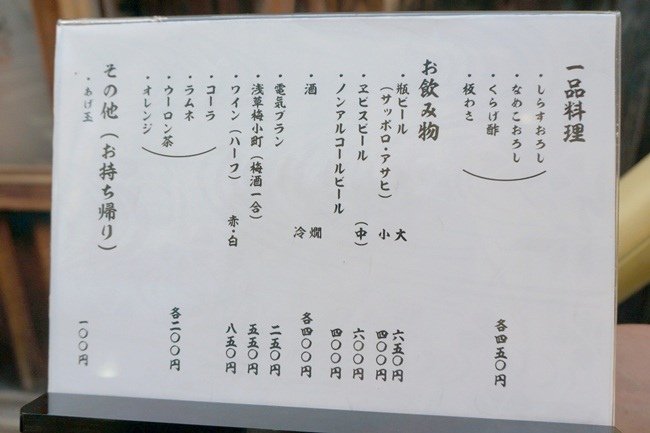 一品料理
・しらすおろし
・なめこおろし
・くらげ酢
・板わさ
各四五〇円
お飲み物
・瓶ビール 大 六五〇円
(サッポロ・アサヒ) 小 四〇〇円
・ヱビスビール (中) 六〇〇円
・ノンアルコールビール 四〇〇円
・酒 燗 冷 各四〇〇円
・電気ブラン 二五〇円
・浅草梅小町(梅酒一合) 五五〇円
・ワイン(ハーフ) 赤・白 八五〇円
・コーラ
・ラムネ
・ウーロン茶
・オレンジ
各二〇〇円
その他(お持ち帰り)
・あげ玉 一〇〇円